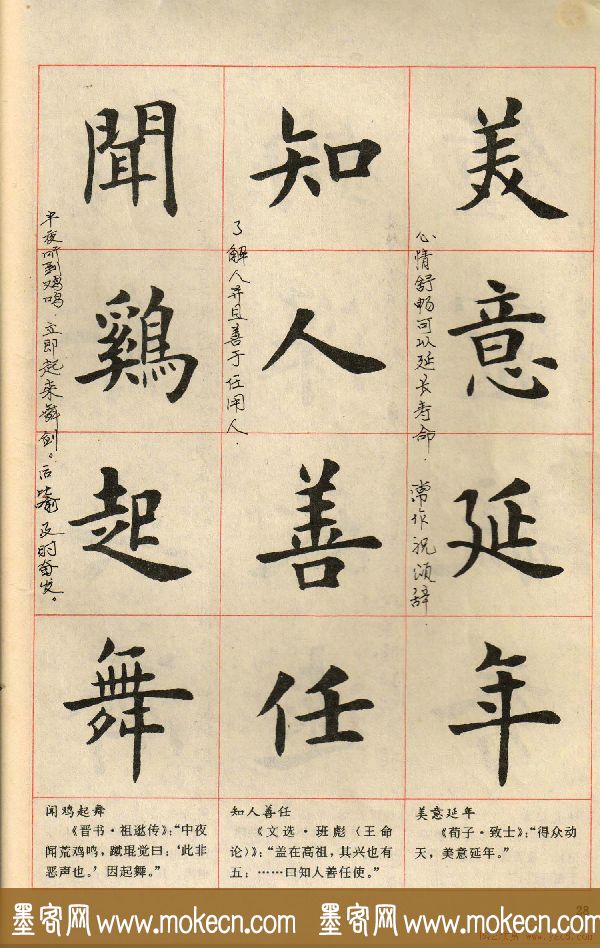 美意延年
心情舒畅可以延长寿命. 常作祝颂辞.
知人善任
了解人并且善于任用人.
聞鷄起舞
半夜听到鸡鸣.立即起来舞剑。后比喻及时奋发。
美意延年
《荀子·致士》:“得众动
天，美意延年。”
知人善任
《文选·班彪〈王命
论〉》:“盖在高祖，其兴也有
五：……曰知人善任使。”
闻鸡起舞
《晋书·祖逖传》:“中夜
闻荒鸡鸣，蹴琨觉曰：‘此非
恶声也。’因起舞。”
28
墨客网 www.mokecn.com 墨客网 www.mokecn.com